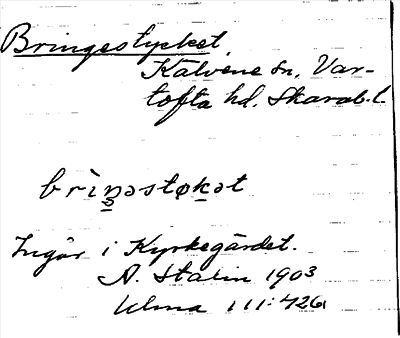 Bringestycket.
Kälvene sn. Var-
tofta hd. Skarab. l.
brìṉəstøḵət
Ingår i Kyrkegärdet.
A. Stalin 1903
Ulma 111:426